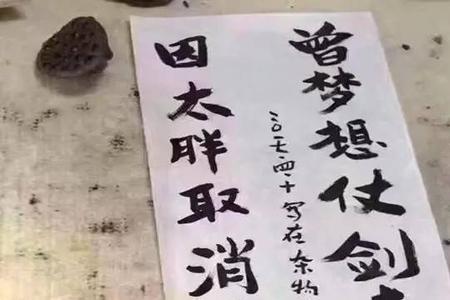 曾梦想仗剑
二〇一七·四·十 写在杂物
因太胖取消